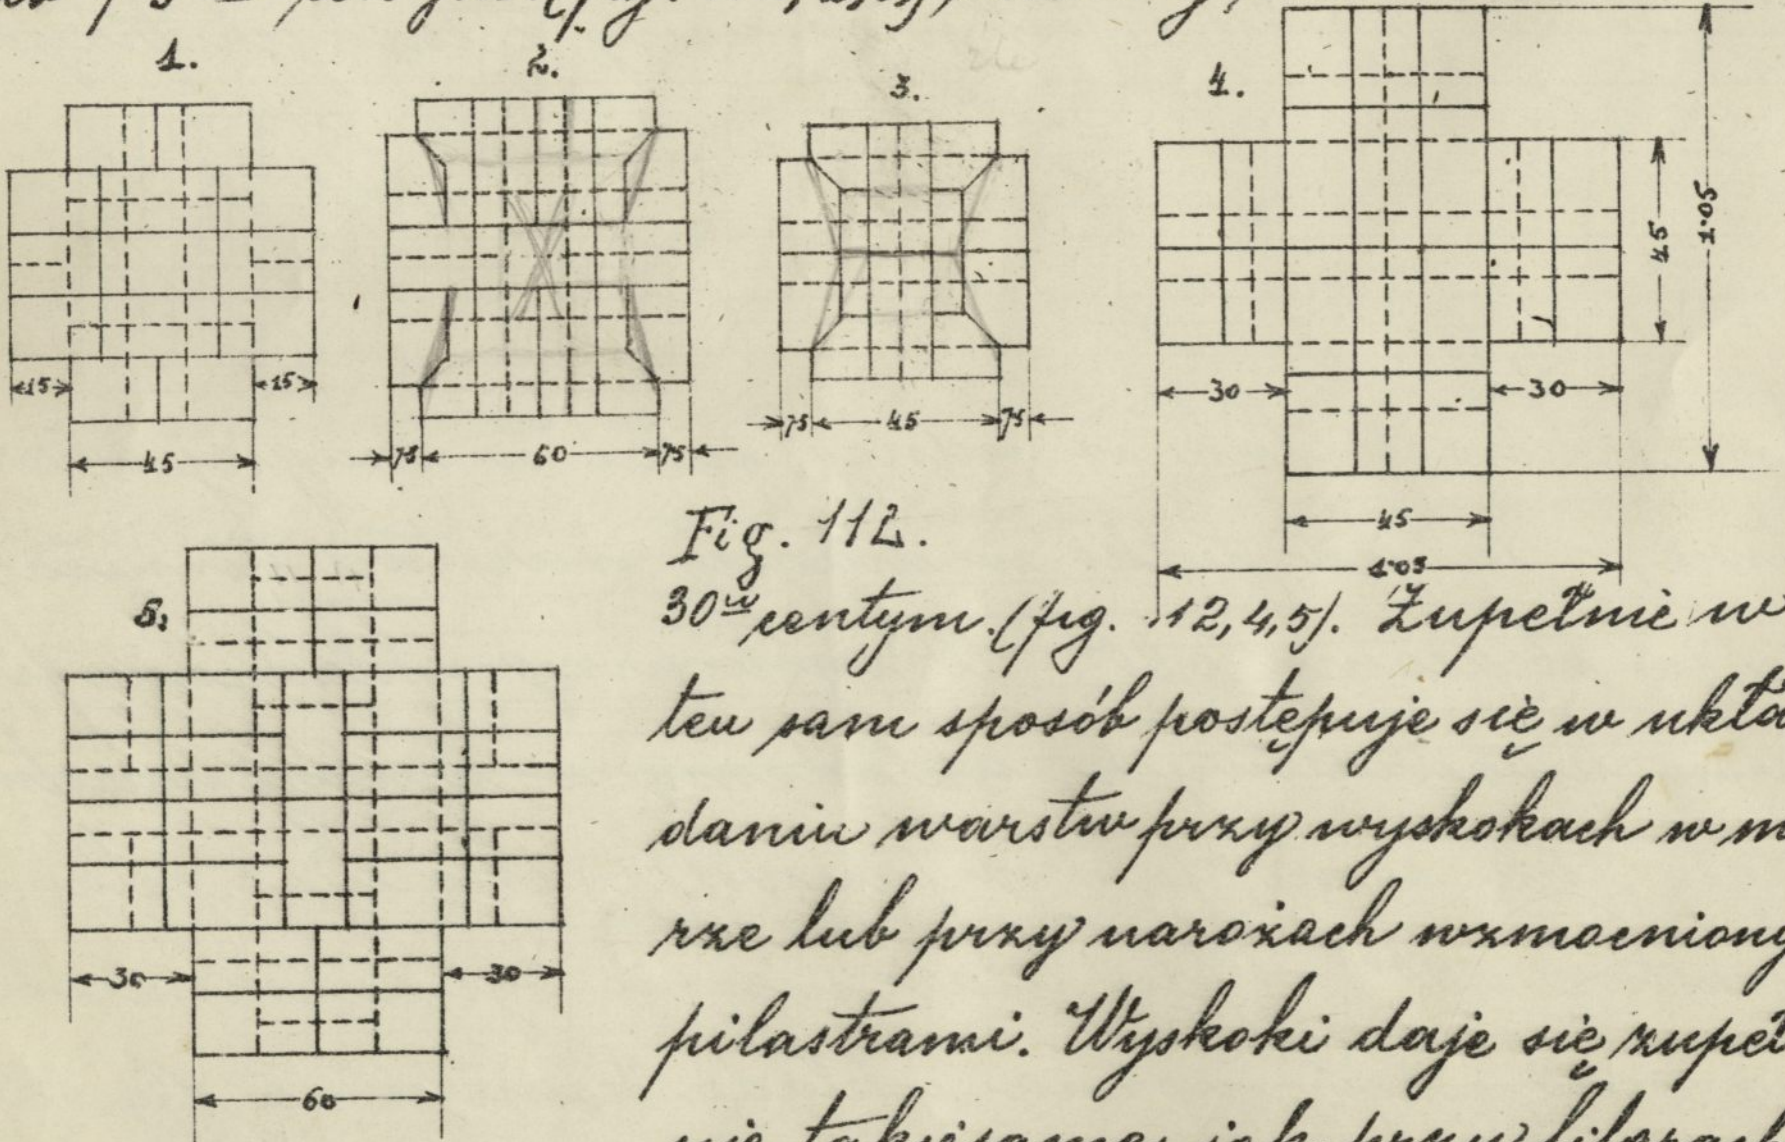 1.
2.
3.
4.
15
15
45
75
60
75
75
45
75
30
30
45
1.05
45
1.05
Fig. 112.
5.
30
30
60
30 centym. (fig. 112,4,5). Zupełnie w
ten sam sposób postępuje się w ukła
daniu warstw przy wyskokach w m
rze lub przy narożach wzmocniony
pilastrami. Wyskoki daje się zupeł